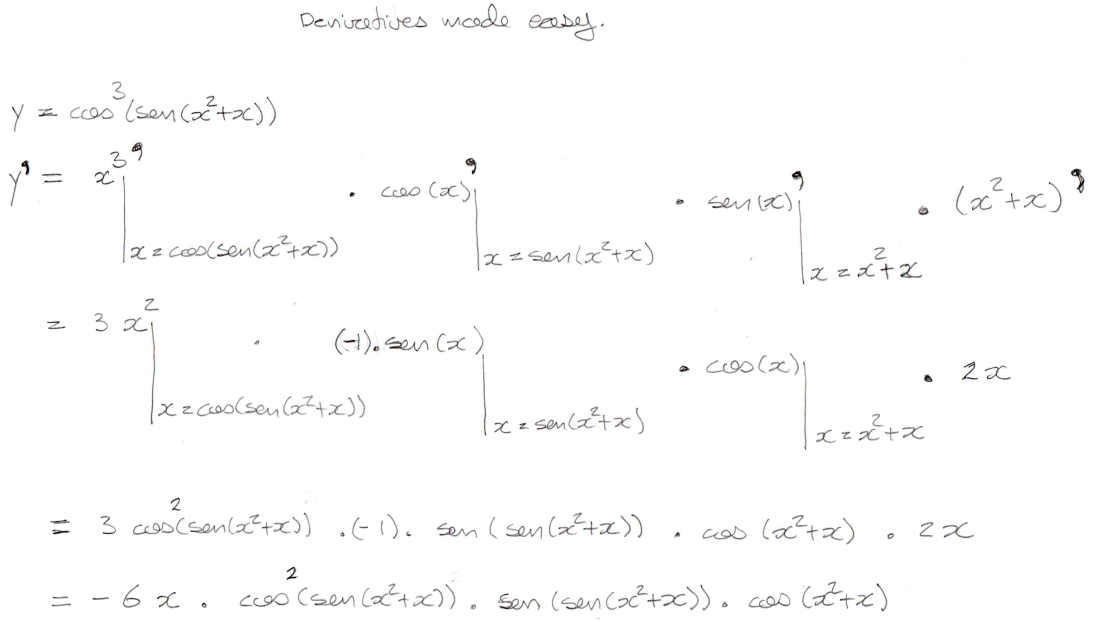 Derivatives made easy.
y = cos³(sen(x²+x))
y' = x³'|x=cos(sen(x²+x)) · cos(x)'|x=sen(x²+x) · sen(x)'|x=x²+x · (x²+x)'
= 3x²|x=cos(sen(x²+x)) · (-1).sen(x)|x=sen(x²+x) · cos(x)|x=x²+x · 2x
= 3 cos²(sen(x²+x)) .(-1). sen(sen(x²+x)) . cos(x²+x) . 2x
= -6x . cos²(sen(x²+x)) . sen(sen(x²+x)) . cos(x²+x)